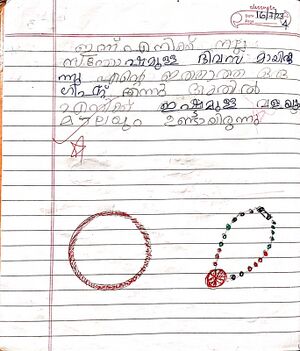 16/7/23
ഇന്ന് എനിക്ക് നല്ല
സന്തോഷമുള്ള ദിവസ മായിരു
ന്നു എന്റെ ഇത്താത്ത ഒരു
ഗിഫ്റ്റ് തന്നു അതിൽ
എനിക്ക് ഇഷ്ടമുള്ള വളയും
മാലയും ഉണ്ടായിരുന്നു